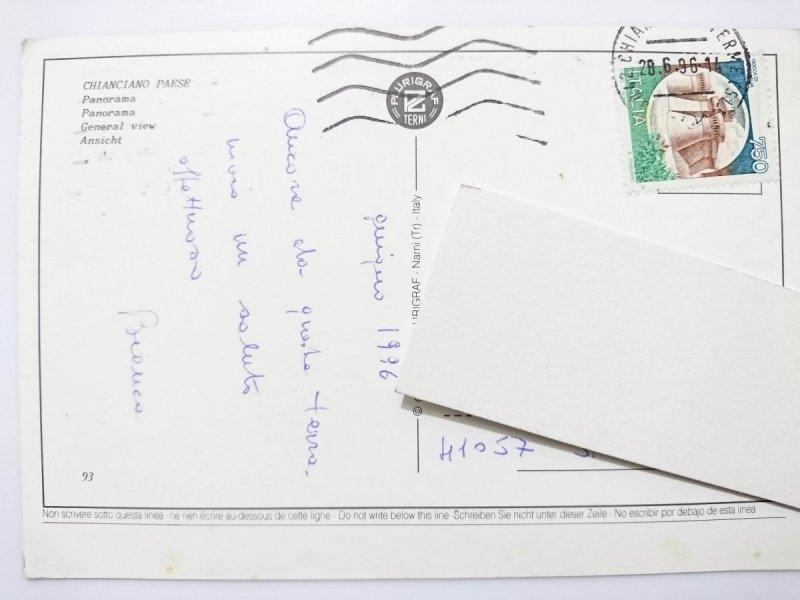 CHIANCIANO PAESE
Panorama
Panorama
General view
Ansicht
PLURIGRAF
TERNI
28.6.96-14
ITALIA
750
giugno 1996
Ancora da questa terra
invio un saluto
affettuoso
Bianca
URIGRAF - Narni (Tr) - Italy
41057
93
Non scrivere sotto questa linea - ne rien écrire au-dessous de cette ligne - Do not write below this line. Schreiben Sie nicht unter dieser Zeile - No escribir por debajo de esta linea